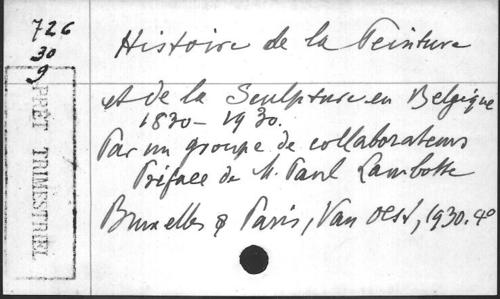 726
30
9
PRÊT TRIMESTRIEL
Histoire de la Peinture
et de la Sculpture en Belgique
1830-1930.
Par un groupe de collaborateurs
Préface de M. Paul Lambotte
Bruxelles & Paris, Van Oest, 1930. 4º